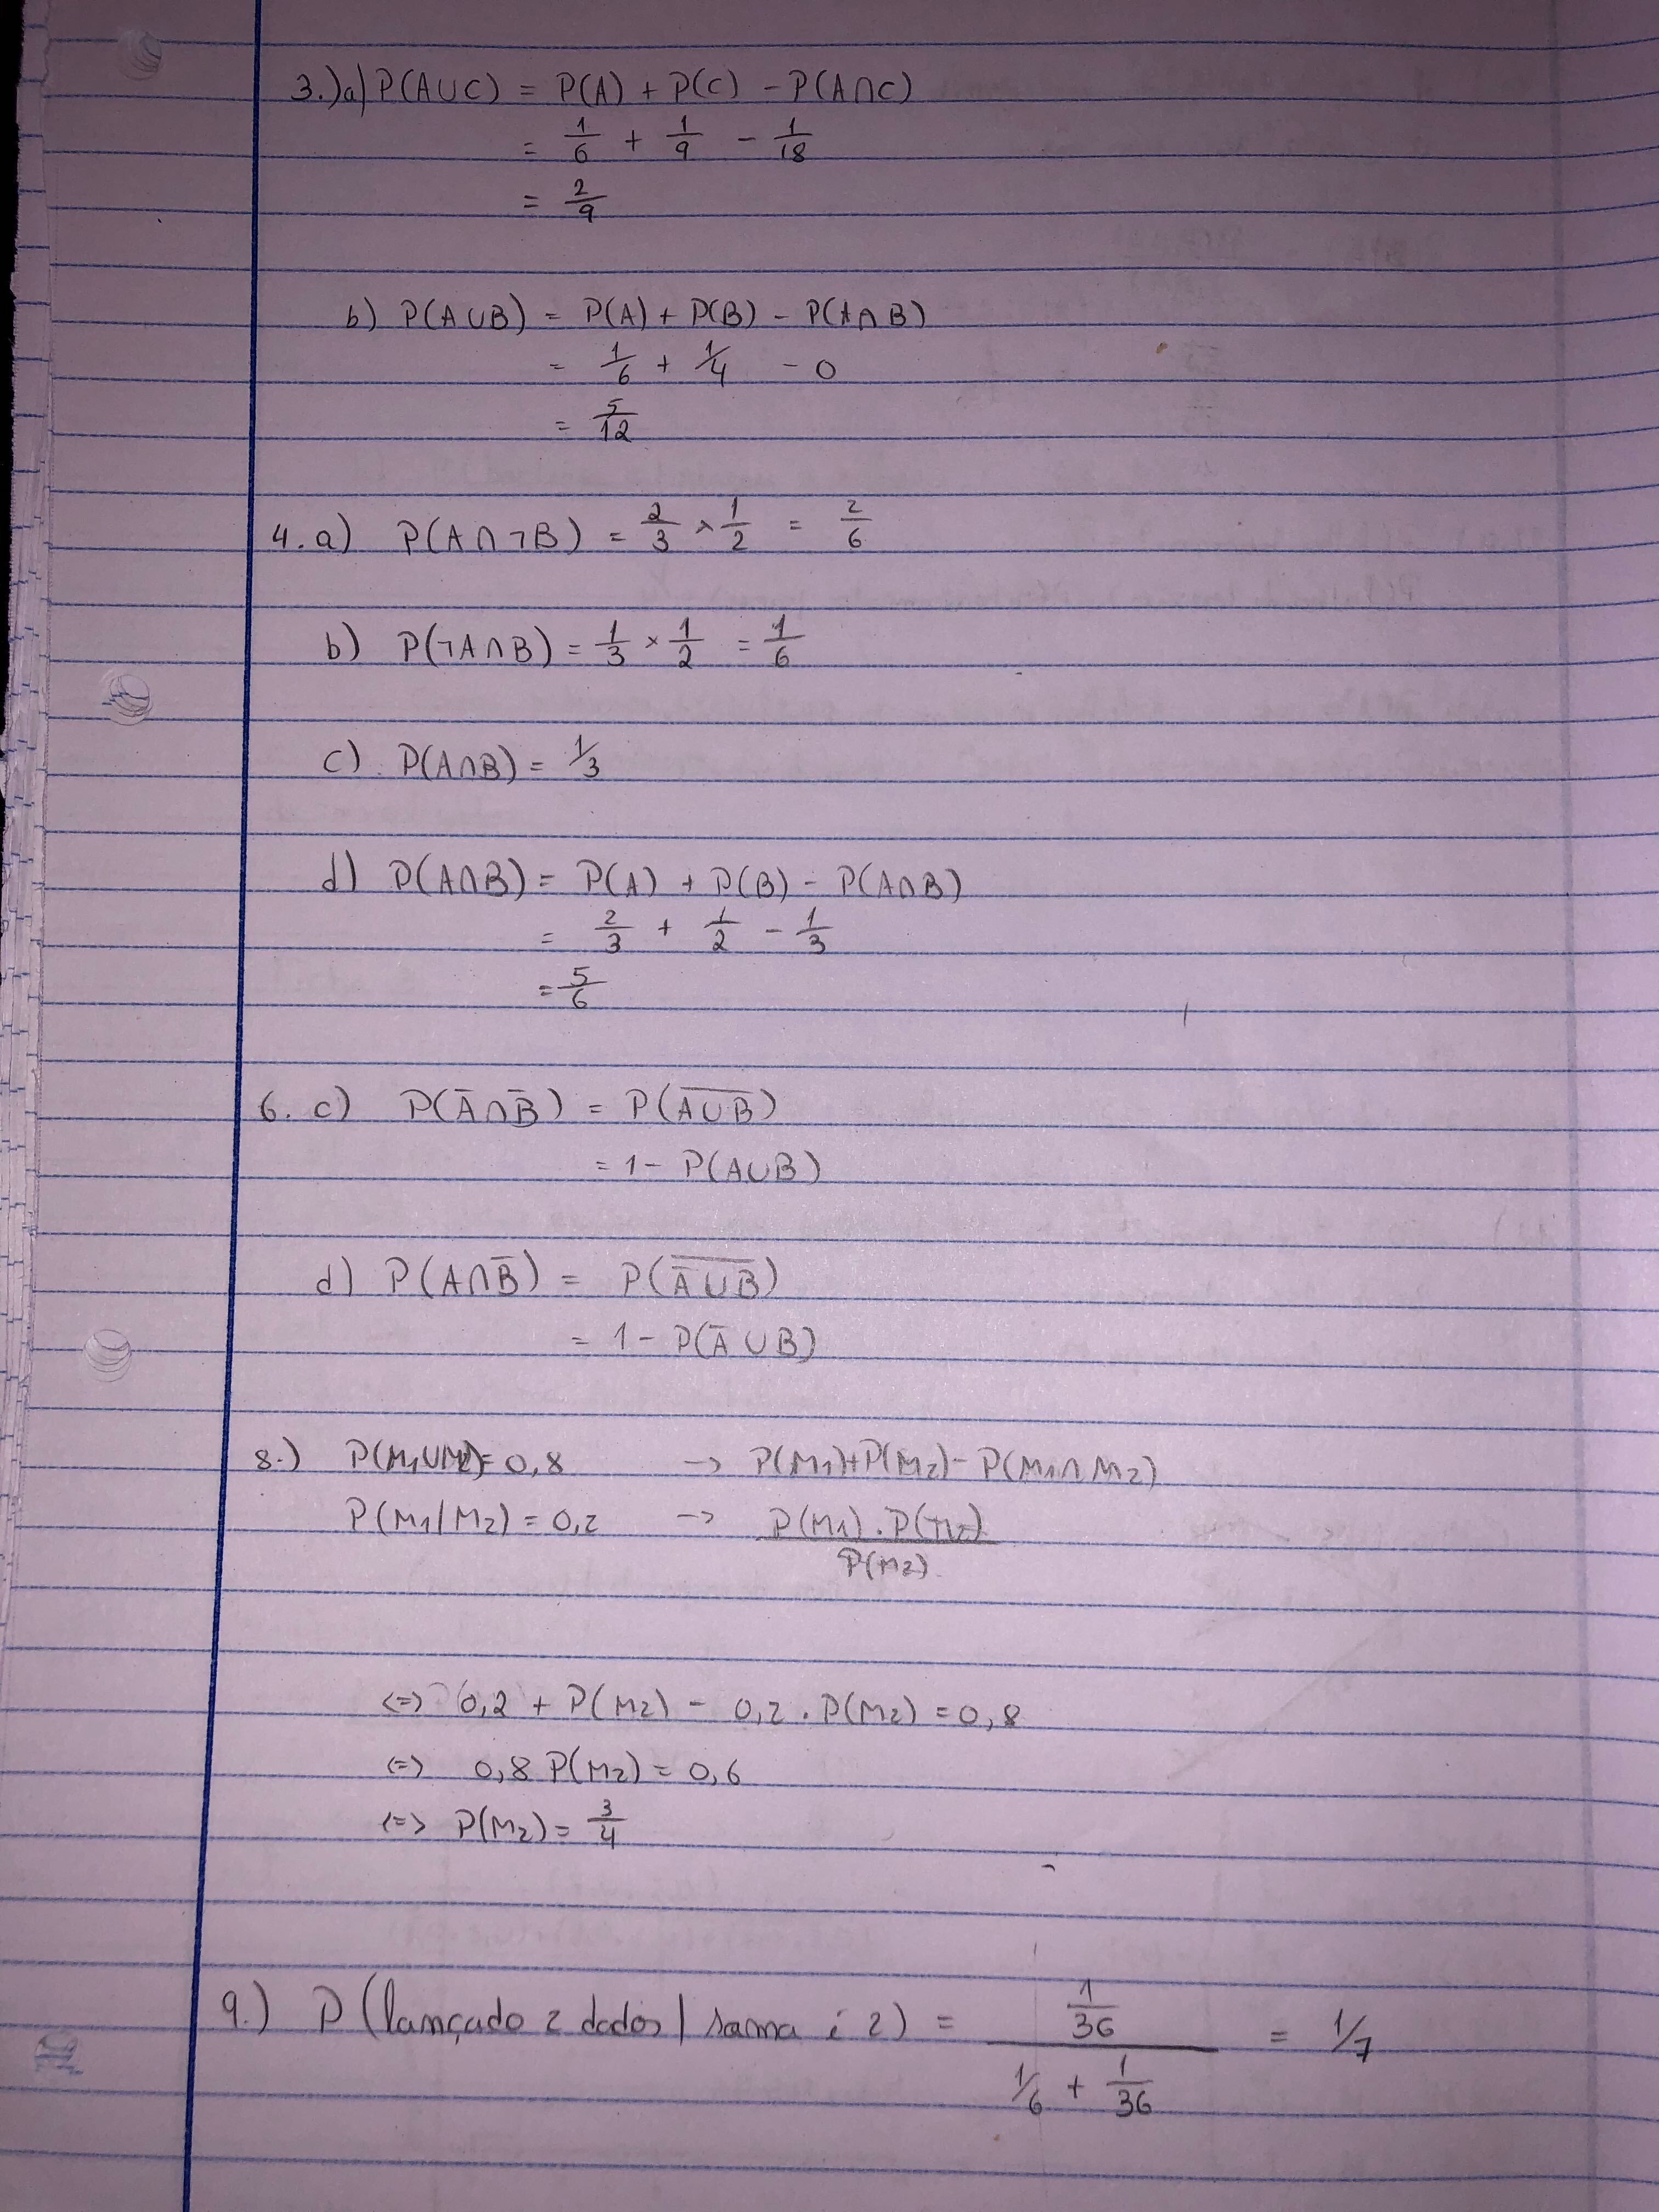 3.) a) P(A∪C) = P(A) + P(C) - P(A∩C)
= 1/6 + 1/9 - 1/18
= 2/9
b) P(A∪B) = P(A) + P(B) - P(A∩B)
= 1/6 + 1/4 - 0
= 5/12
4. a) P(A∩¬B) = 2/3 × 1/2 = 2/6
b) P(¬A∩B) = 1/3 × 1/2 = 1/6
c) P(A∩B) = 1/3
d) P(A∩B) = P(A) + P(B) - P(A∩B)
= 2/3 + 1/2 - 1/3
= 5/6
6. c) P(A̅∩B̅) = P(A̅∪̅B̅)
= 1 - P(A∪B)
d) P(A∩B̅) = P(\overline{A̅∪B})
= 1 - P(A̅∪B)
8.) P(M1∪M2) = 0,8 → P(M1)+P(M2) - P(M1∩M2)
P(M1|M2) = 0,2 → P(M1).P(M2)/P(M2)
<=> 0,2 + P(M2) - 0,2 . P(M2) = 0,8
<=> 0,8 P(M2) = 0,6
<=> P(M2) = 3/4
9.) P(lançado 2 dados | soma é 2) = (1/36)/(1/6 + 1/36) = 1/7